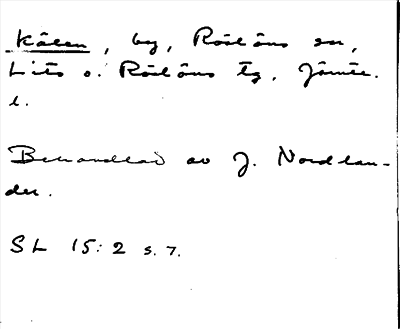 Kälen, by, Rödöns sn,
Lits o. Rödöns tg, Jämtl.
l.
Behandlad av J. Nordlan-
der.
SL 15:2 s. 7.